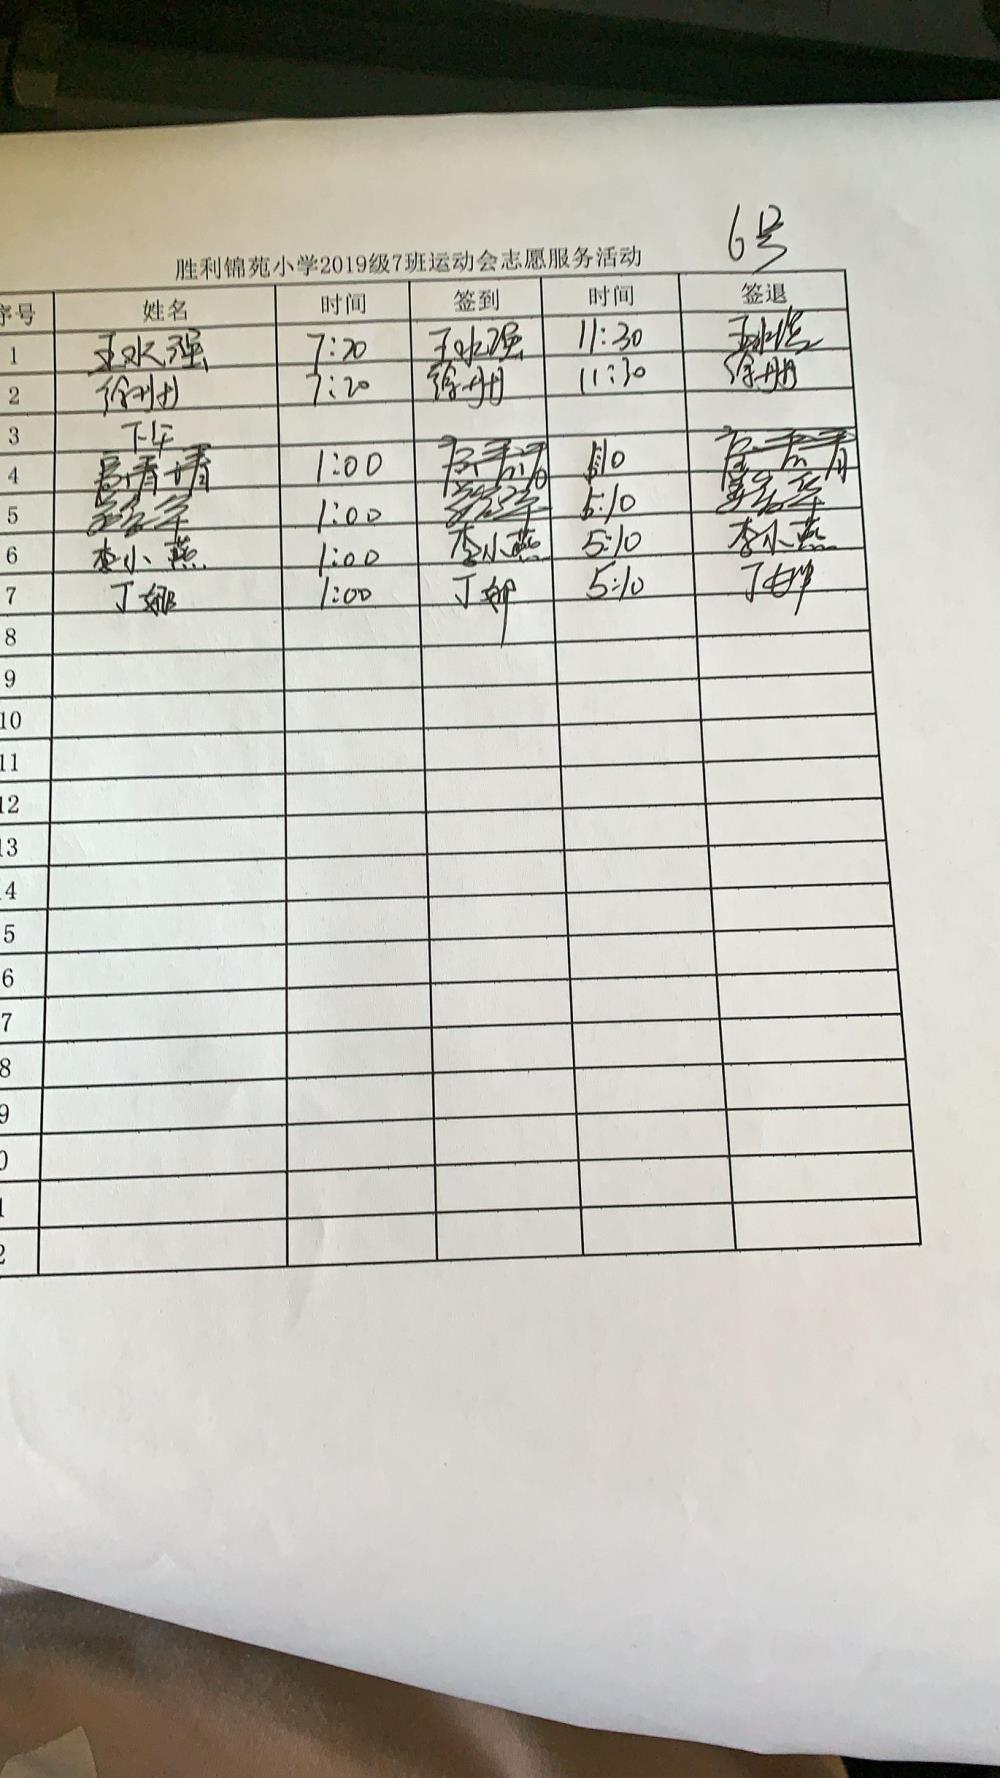 6号
胜利锦苑小学2019级7班运动会志愿服务活动
序号 姓名 时间 签到 时间 签退
1 王水强 7:20 王水强 11:30 王水强
2 徐册册 7:20 徐册册 11:30 徐册册
3 下午
4 高青青 1:00
5 1:00 5:10
6 李小燕 1:00 李小燕 5:10 李小燕
7 丁娜 1:00 丁娜 5:10 丁娜
8
9
10
11
12
13
4
5
6
7
8
9
0
1
2